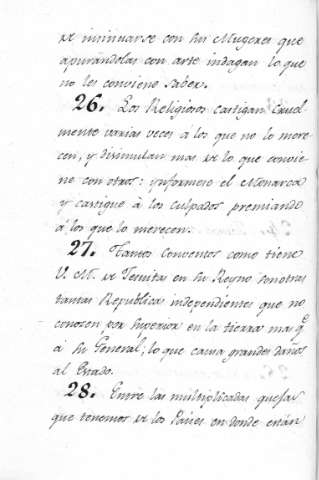 de insinuarse con sus Mugeres que
apurandolas con arte indagan lo que
no les conviene saber.
26. Los Religiosos castigan cruel-
mente varias veces á los que no lo mere-
cen, y disimulan mas de lo que convie-
ne con otros: ynformese el Monarca
y castigue á los culpados premiando
á los que lo merecen.
27. Tantos Conventos como tiene
V. M. de Jesuitas en su Reyno son otras
tantas Republicas independientes que no
conocen por Superior en la tierra mas q.e
á su General; lo que causa grandes daños
al Estado.
28. Entre las multiplicadas quejas
que tenemos de los Paises en donde están